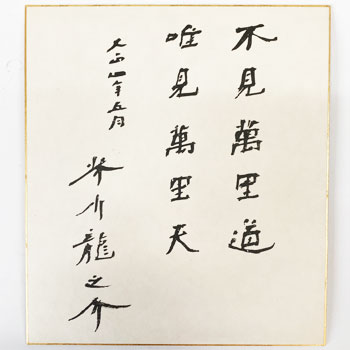 不見萬里道
唯見萬里天
大正四年五月
芥川龍之介